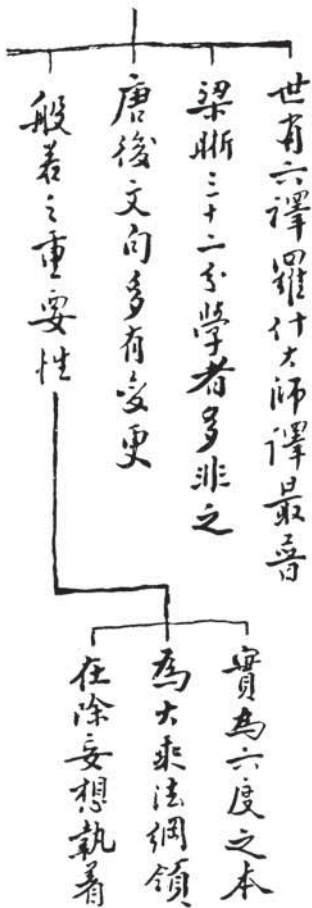 世有六譯羅什大師譯最普
梁晣三十二分學者多非之
唐後文句多有變更
般若之重要性
實為六度之本
為大乘法綱領
在除妄想執着